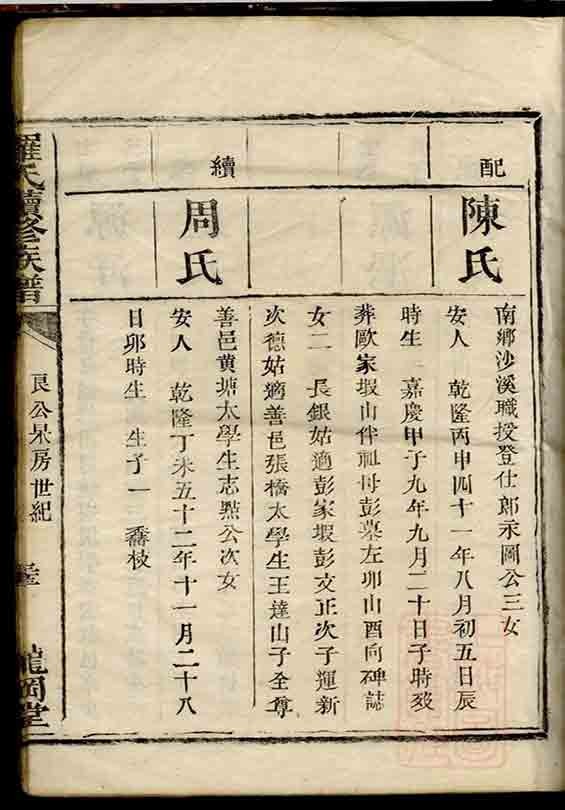 配
陳氏
南鄉沙溪職授登仕郎永圖公三女
安人 乾隆丙申四十一年八月初五日辰
時生 嘉慶甲子九年九月二十日子時歿
葬歐家塅山伴祖母彭墓左卯山酉向碑誌
女二 長銀姑適彭家塅彭文正次子運新
次德姑適善邑張橋太學生王達山子全尊
續
周氏
善邑黃塘太學生志點公次女
安人 乾隆丁未五十二年十一月二十八
日卯時生 生子一 喬枝
羅氏續修族譜
良公杲房世紀
龍岡堂